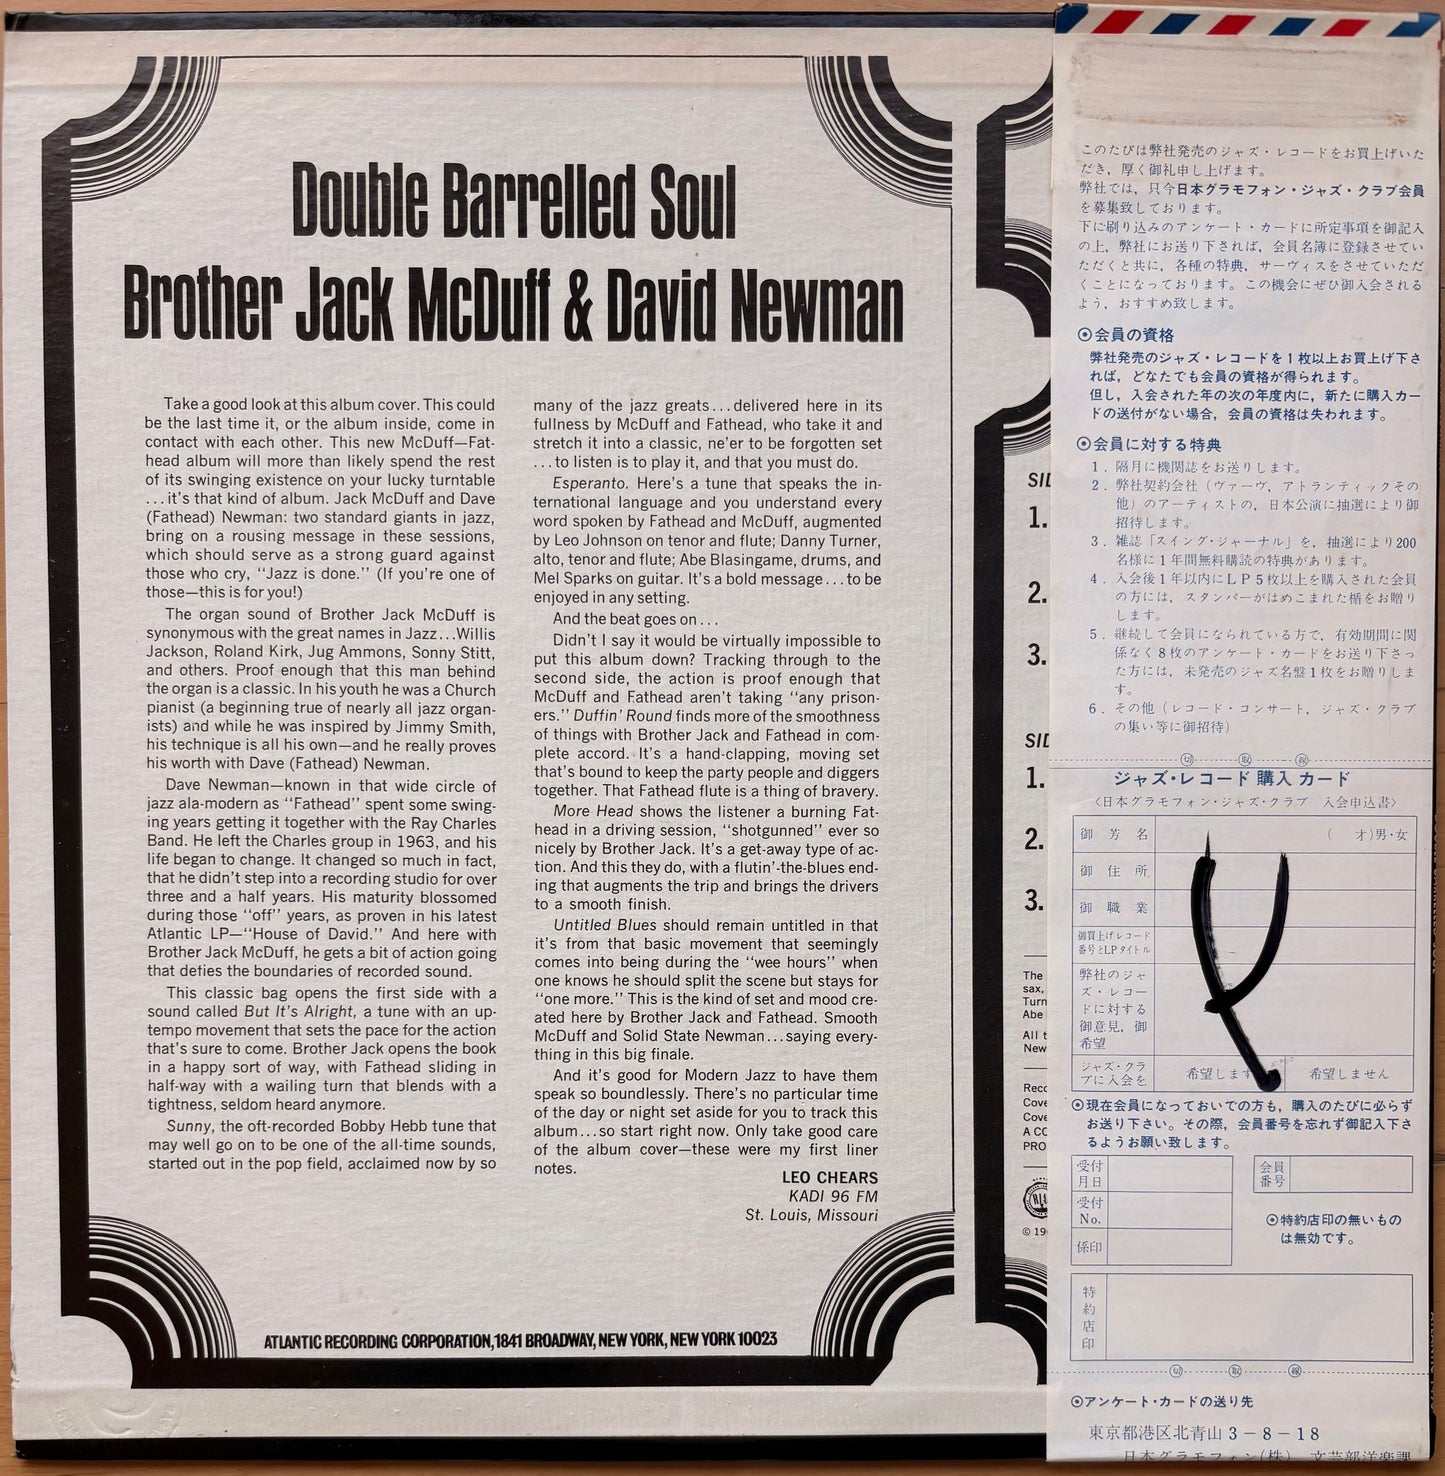 Double Barrelled Soul
Brother Jack McDuff & David Newman
Take a good look at this album cover. This could
be the last time it, or the album inside, come in
contact with each other. This new McDuff—Fat-
head album will more than likely spend the rest
of its swinging existence on your lucky turntable
...it's that kind of album. Jack McDuff and Dave
(Fathead) Newman: two standard giants in jazz,
bring on a rousing message in these sessions,
which should serve as a strong guard against
those who cry, "Jazz is done." (If you're one of
those—this is for you!)
The organ sound of Brother Jack McDuff is
synonymous with the great names in Jazz...Willis
Jackson, Roland Kirk, Jug Ammons, Sonny Stitt,
and others. Proof enough that this man behind
the organ is a classic. In his youth he was a Church
pianist (a beginning true of nearly all jazz organ-
ists) and while he was inspired by Jimmy Smith,
his technique is all his own—and he really proves
his worth with Dave (Fathead) Newman.
Dave Newman—known in that wide circle of
jazz ala-modern as "Fathead" spent some swing-
ing years getting it together with the Ray Charles
Band. He left the Charles group in 1963, and his
life began to change. It changed so much in fact,
that he didn't step into a recording studio for over
three and a half years. His maturity blossomed
during those "off" years, as proven in his latest
Atlantic LP—"House of David." And here with
Brother Jack McDuff, he gets a bit of action going
that defies the boundaries of recorded sound.
This classic bag opens the first side with a
sound called But It's Alright, a tune with an up-
tempo movement that sets the pace for the action
that's sure to come. Brother Jack opens the book
in a happy sort of way, with Fathead sliding in
half-way with a wailing turn that blends with a
tightness, seldom heard anymore.
Sunny, the oft-recorded Bobby Hebb tune that
may well go on to be one of the all-time sounds,
started out in the pop field, acclaimed now by so
many of the jazz greats...delivered here in its
fullness by McDuff and Fathead, who take it and
stretch it into a classic, ne'er to be forgotten set
...to listen is to play it, and that you must do.
Esperanto. Here's a tune that speaks the in-
ternational language and you understand every
word spoken by Fathead and McDuff, augmented
by Leo Johnson on tenor and flute; Danny Turner,
alto, tenor and flute; Abe Blasingame, drums, and
Mel Sparks on guitar. It's a bold message...to be
enjoyed in any setting.
And the beat goes on...
Didn't I say it would be virtually impossible to
put this album down? Tracking through to the
second side, the action is proof enough that
McDuff and Fathead aren't taking "any prison-
ers." Duffin' Round finds more of the smoothness
of things with Brother Jack and Fathead in com-
plete accord. It's a hand-clapping, moving set
that's bound to keep the party people and diggers
together. That Fathead flute is a thing of bravery.
More Head shows the listener a burning Fat-
head in a driving session, "shotgunned" ever so
nicely by Brother Jack. It's a get-away type of ac-
tion. And this they do, with a flutin'-the-blues end-
ing that augments the trip and brings the drivers
to a smooth finish.
Untitled Blues should remain untitled in that
it's from that basic movement that seemingly
comes into being during the "wee hours" when
one knows he should split the scene but stays for
"one more." This is the kind of set and mood cre-
ated here by Brother Jack and Fathead. Smooth
McDuff and Solid State Newman...saying every-
thing in this big finale.
And it's good for Modern Jazz to have them
speak so boundlessly. There's no particular time
of the day or night set aside for you to track this
album...so start right now. Only take good care
of the album cover—these were my first liner
notes.
LEO CHEARS
KADI 96 FM
St. Louis, Missouri
ATLANTIC RECORDING CORPORATION, 1841 BROADWAY, NEW YORK, NEW YORK 10023
SID
1.
2.
3.
SID
1.
2.
3.
The
sax,
Turn
Abe
All t
New
Reco
Cove
Cove
A CO
PRO
© 19
このたびは弊社発売のジャズ・レコードをお買上げいた
だき，厚く御礼申し上げます。
弊社では，只今日本グラモフォン・ジャズ・クラブ会員
を募集致しております。
下に刷り込みのアンケート・カードに所定事項を御記入
の上，弊社にお送り下されば，会員名簿に登録させてい
ただくと共に，各種の特典，サーヴィスをさせていただ
くことになっております。この機会にぜひ御入会される
よう，おすすめ致します。
◉会員の資格
弊社発売のジャズ・レコードを１枚以上お買上げ下さ
れば，どなたでも会員の資格が得られます。
但し，入会された年の次の年度内に，新たに購入カー
ドの送付がない場合，会員の資格は失われます。
◉会員に対する特典
１．隔月に機関誌をお送りします。
２．弊社契約会社（ヴァーヴ，アトランティックその
他）のアーティストの，日本公演に抽選により御
招待します。
３．雑誌「スイング・ジャーナル」を，抽選により200
名様に１年間無料購読の特典があります。
４．入会後１年以内にＬＰ５枚以上を購入された会員
の方には，スタンパーがはめこまれた楯をお贈り
します。
５．継続して会員になられている方で，有効期間に関
係なく８枚のアンケート・カードをお送り下さっ
た方には，未発売のジャズ名盤１枚をお贈りしま
す。
６．その他（レコード・コンサート，ジャズ・クラブ
の集い等に御招待）
切 取 線
ジャズ・レコード 購入 カード
〈日本グラモフォン・ジャズ・クラブ 入会申込書〉
御芳名 （ 才）男・女
御住所
御職業
御買上げレコード
番号とLPタイトル
弊社のジャ
ズ・レコー
ドに対する
御意見，御
希望
ジャズ・クラ
ブに入会を 希望します 希望しません
◉現在会員になっておいでの方も，購入のたびに必らず
お送り下さい。その際，会員番号を忘れず御記入下さ
るようお願い致します。
受付
月日
会員
番号
受付
No.
係印
◉特約店印の無いもの
は無効です。
特約店印
切 取 線
◉アンケート・カードの送り先
東京都港区北青山 3－8－18
日本グラモフォン(株) 文芸部洋楽課